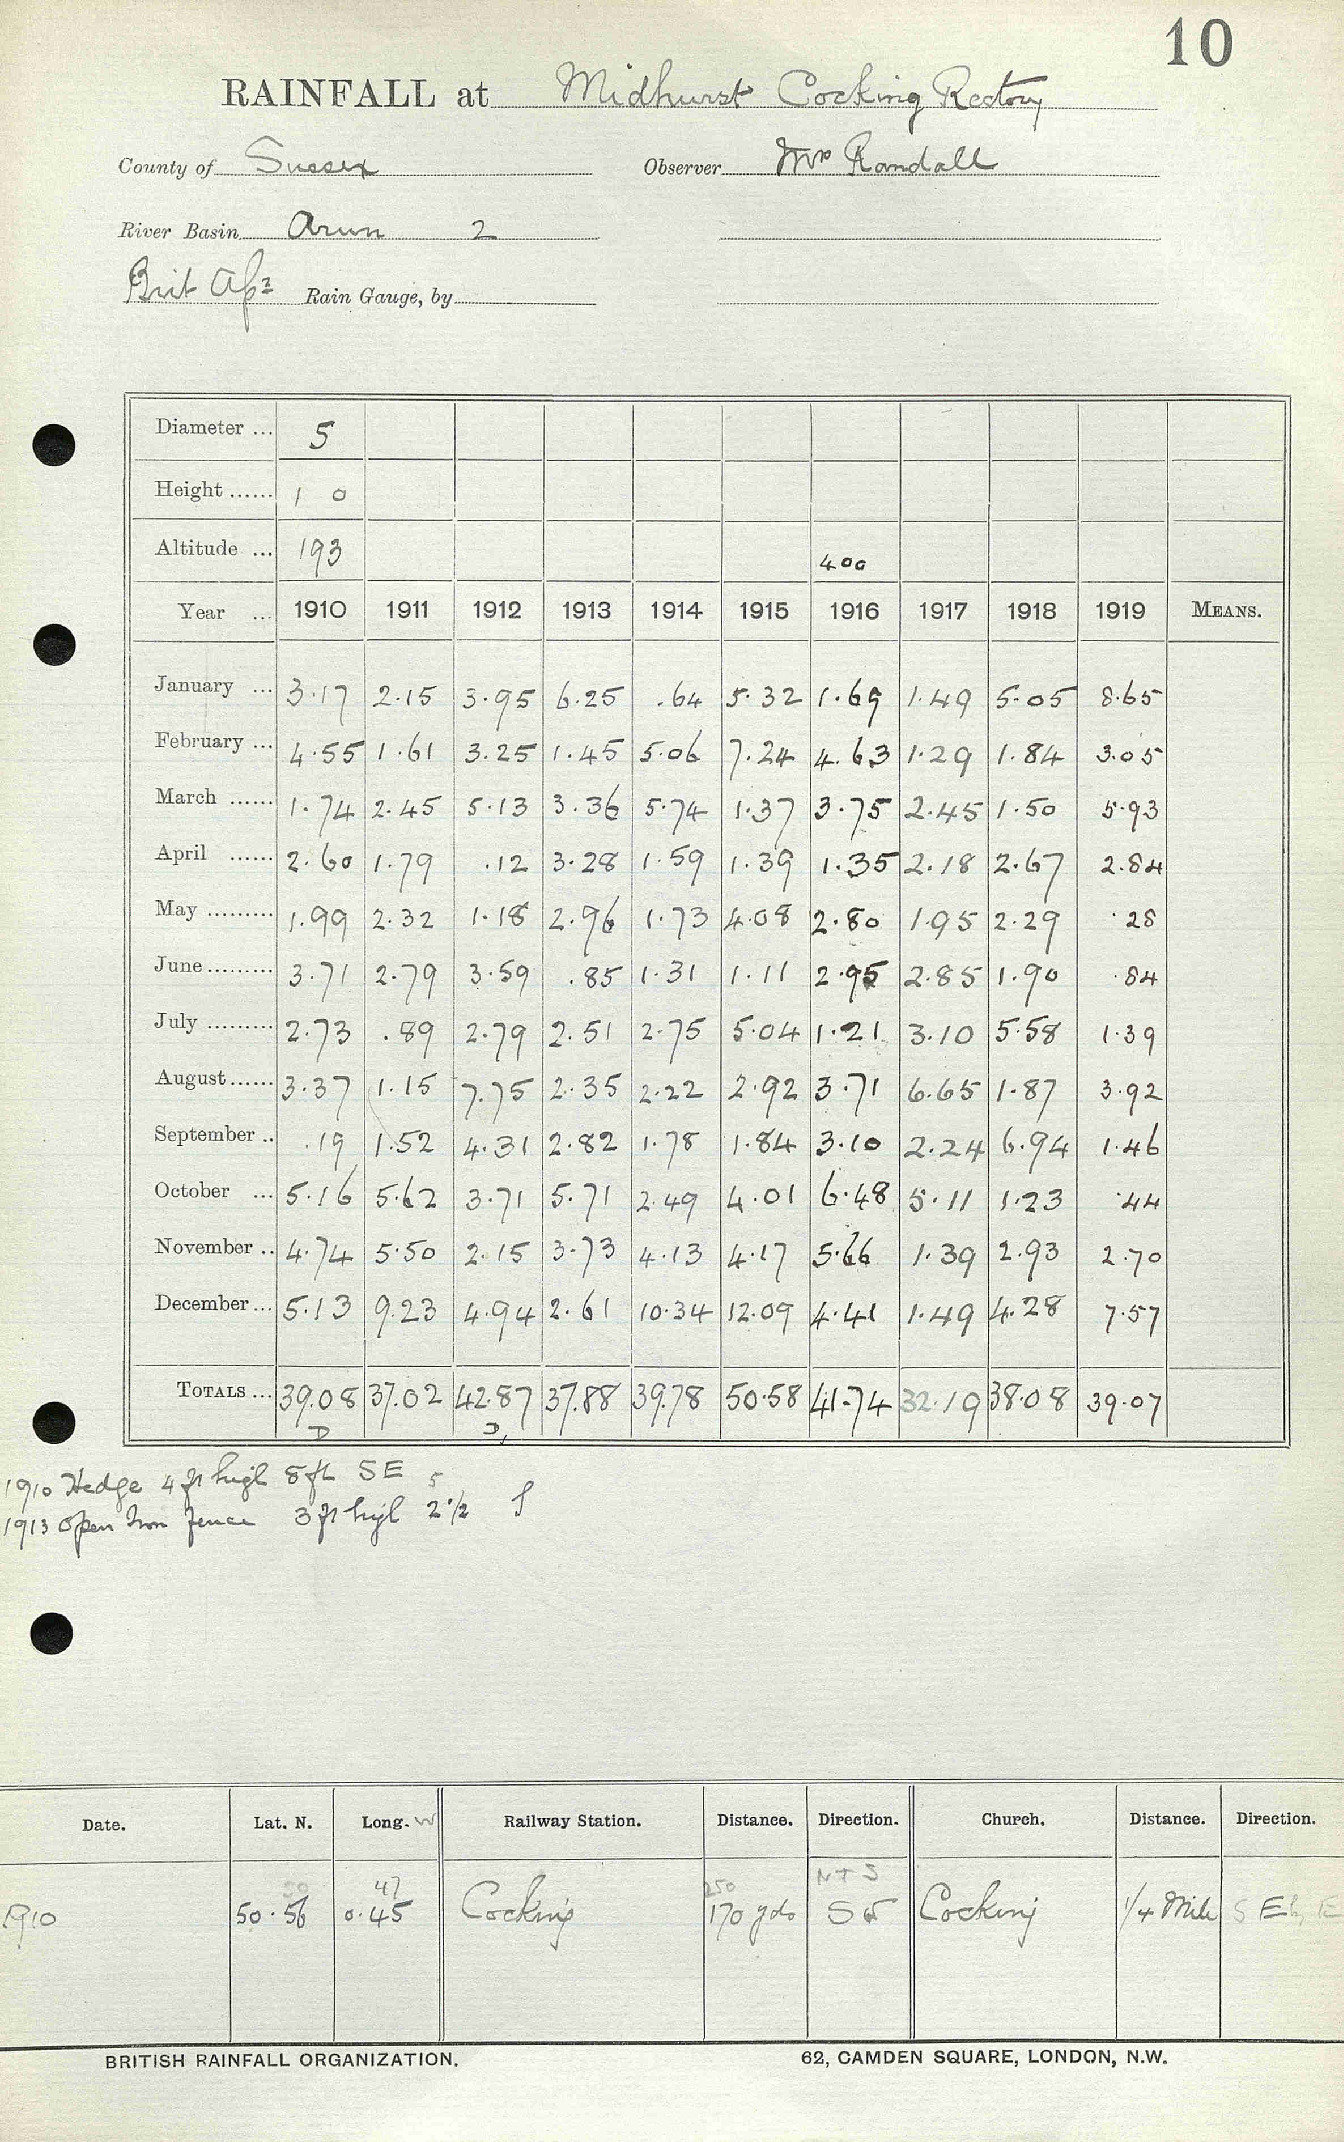 10
RAINFALL at Midhurst Cocking Rectory
County of Sussex Observer Mrs Randall
River Basin Arun 2
Brit Ap Rain Gauge, by
Diameter ... 5
Height ...... 1 0
Altitude ... 193 400
Year ... 1910 1911 1912 1913 1914 1915 1916 1917 1918 1919 MEANS.
January ... 3.17 2.15 3.95 6.25 .64 5.32 1.69 1.49 5.05 8.65
February ... 4.55 1.61 3.25 1.45 5.06 7.24 4.63 1.29 1.84 3.05
March ...... 1.74 2.45 5.13 3.36 5.74 1.37 3.75 2.45 1.50 5.93
April ...... 2.60 1.79 .12 3.28 1.59 1.39 1.35 2.18 2.67 2.84
May ......... 1.99 2.32 1.18 2.96 1.73 4.08 2.80 1.95 2.29 .28
June ......... 3.71 2.79 3.59 .85 1.31 1.11 2.95 2.85 1.90 .84
July ......... 2.73 .89 2.79 2.51 2.75 5.04 1.21 3.10 5.58 1.39
August ...... 3.37 1.15 7.75 2.35 2.22 2.92 3.71 6.65 1.87 3.92
September .. .19 1.52 4.31 2.82 1.78 1.84 3.10 2.24 6.94 1.46
October ... 5.16 5.62 3.71 5.71 2.49 4.01 6.48 5.11 1.23 .44
November .. 4.74 5.50 2.15 3.73 4.13 4.17 5.66 1.39 2.93 2.70
December ... 5.13 9.23 4.94 2.61 10.34 12.09 4.41 1.49 4.28 7.57
TOTALS ... 39.08 37.02 42.87 37.88 39.78 50.58 41.74 32.19 38.08 39.07
D D,
1910 Hedge 4 ft high 8 ft SE
5
1913 open iron fence 3 ft high 2 1/2
Date. Lat. N. Long. W Railway Station. Distance. Direction. Church. Distance. Direction.
47 250
1910 50.56 0.45 Cocking 170 yds SW Cocking 1/4 Mile S E
BRITISH RAINFALL ORGANIZATION. 62, CAMDEN SQUARE, LONDON, N.W.